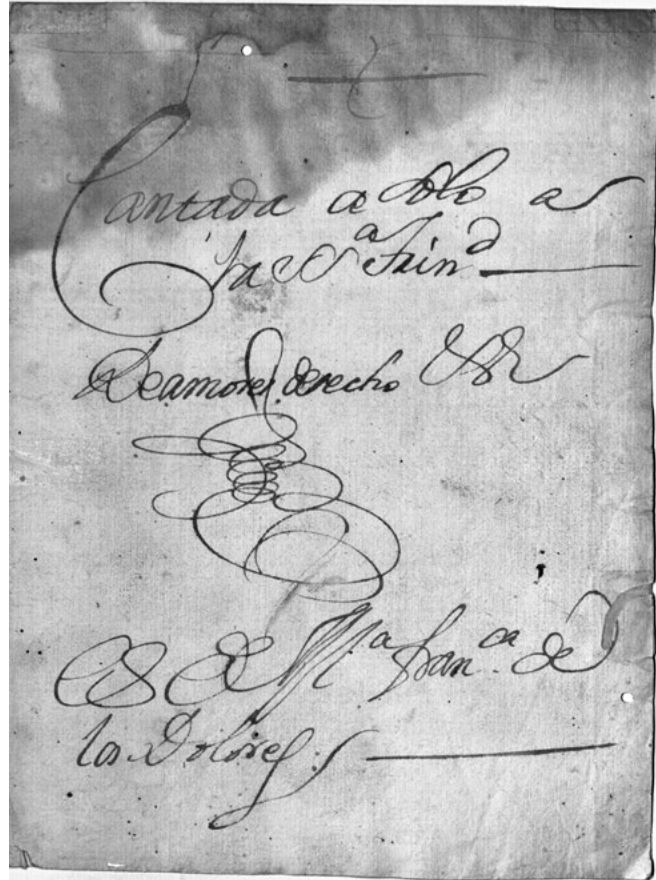 Cantada a Solo a
la SSᵃ Trinᵈ
De amores desecho &ª
Es de Mᵃ Franᶜᵃ de
los Dolores